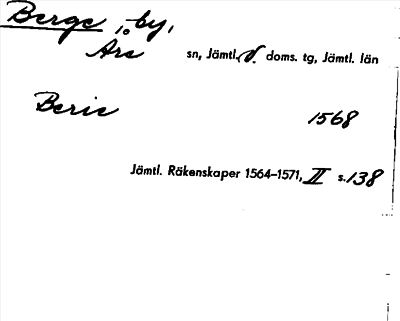 Berge, by,
Ars sn, Jämtl. v. doms. tg, Jämtl. län
Beric 1568
Jämtl. Räkenskaper 1564–1571, II s. 138